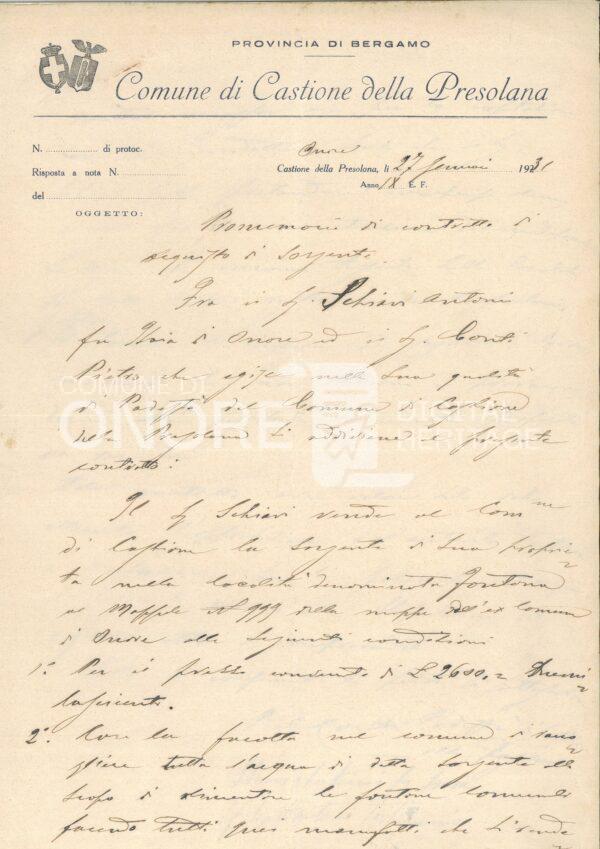 PROVINCIA DI BERGAMO
Comune di Castione della Presolana
N. .................... di protoc.
Risposta a nota N. ....................
del ....................
OGGETTO:
Onore
Castione della Presolana, li 27 Gennaio 1931
Anno IX E. F.
Promemoria di contratto di
acquisto di sorgente.
Fra il Sg. Schiavi Antonio
fu di Onore ed il Sg. Conti
Pietro che agisce nella sua qualità
di Podestà del Comune di Castione
della Presolana si addiviene al presente
contratto:
Il Sg Schiavi vende al Comune
di Castione la sorgente di sua proprie
tà nella località denominata Fontana
al Mappale N 999 della mappa dell'ex Comune
di Onore alle seguenti condizioni
1°. Per il prezzo convenuto di £ 2600.= Duemi
laseicento.
2°. Con la facoltà nel comune di
gliere tutta l'acqua di detta sorgente allo
scopo di alimentare le fontane comunali
facendo tutti quei manufatti che si rende
COMUNE DI
ONORE
DIGITAL
HERITAGE